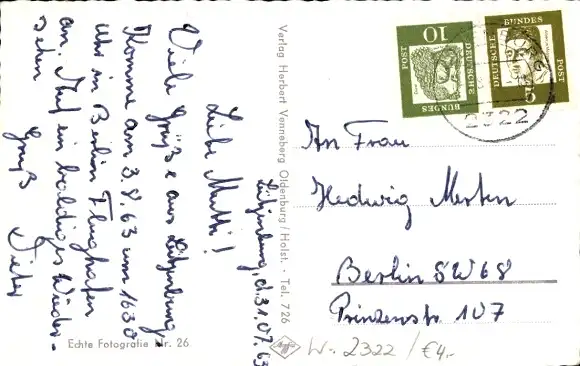 Lütjenburg, d. 31.07.63
Liebe Mutti!
Viele Grüße aus Lütjenburg.
Komme am 3.8.63 um 1630
Uhr in Berlin Flughafen
an. Auf ein baldiges Wieder-
sehen
Gruß
Dieter
Echte Fotografie Nr. 26
Verlag Herbert Venneberg Oldenburg/Holst. · Tel. 726
Agfa
10
DEUTSCHE
BUNDES
POST
DEUTSCHE
BUNDES
POST
5
2322
An Frau
Hedwig Merten
Berlin SW68
Prinzenstr. 107
W- 2322 / €4,-